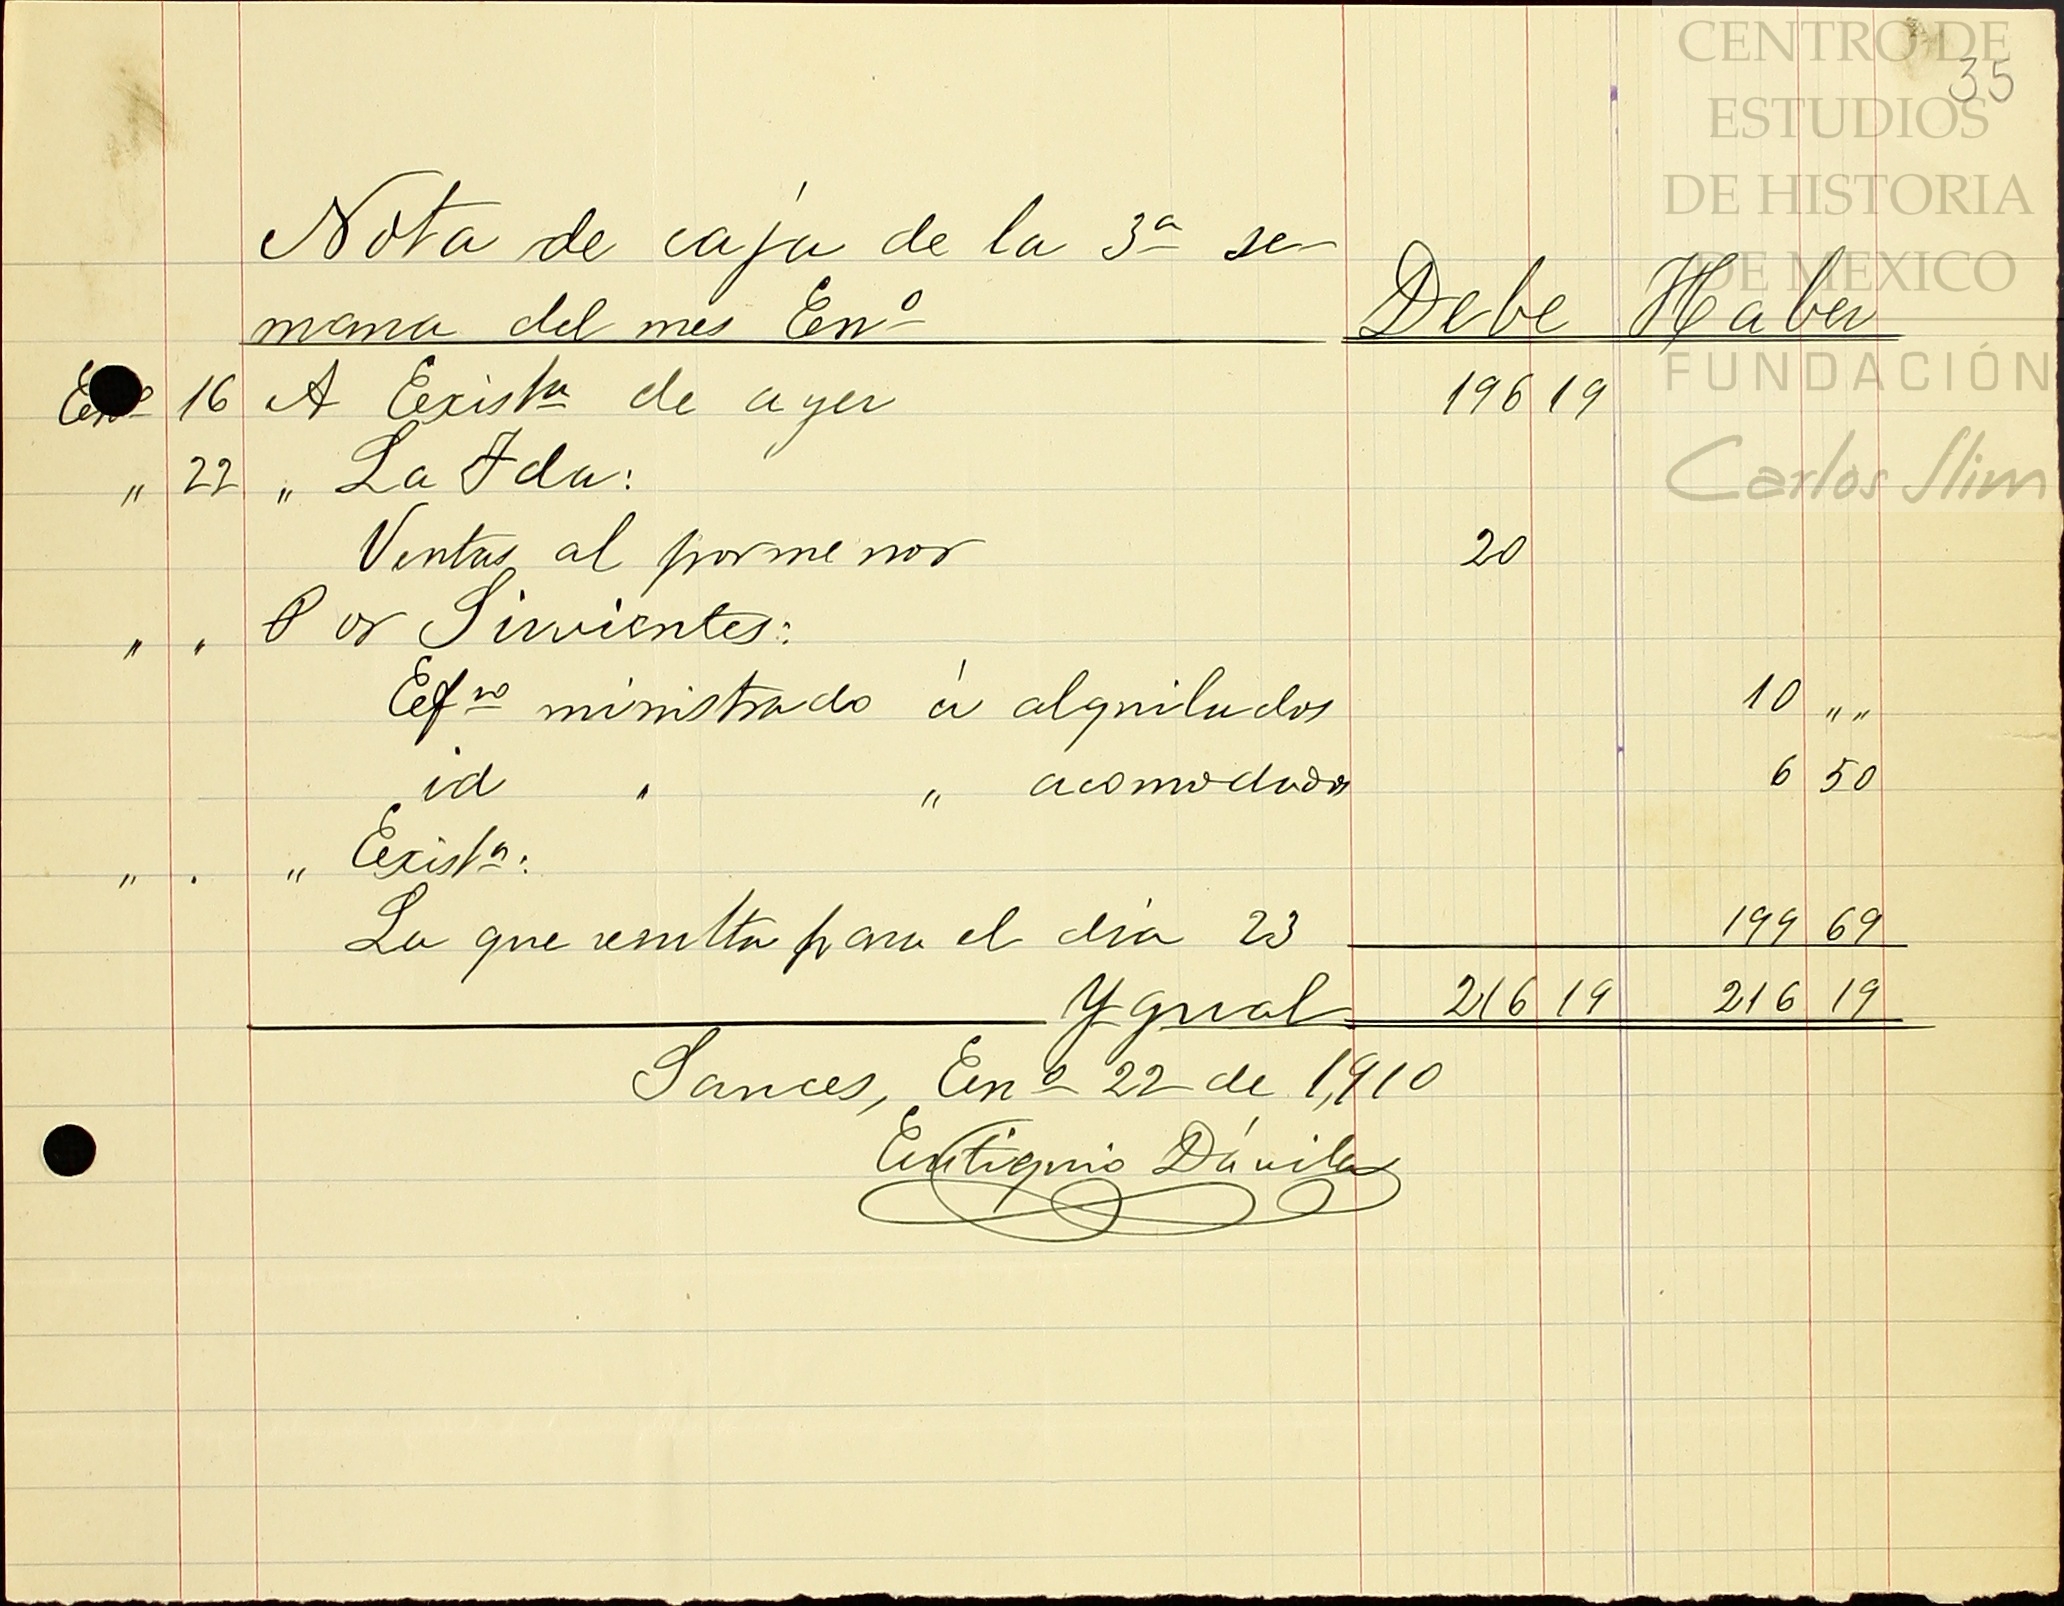 CENTRO DE
35
ESTUDIOS
DE HISTORIA
DE MEXICO
FUNDACIÓN
Carlos Slim
Nota de caja de la 3ª se-
mana del mes Enº Debe Haber
Enº 16 A Existª de ayer 196 19
" 22 " La Fda:
Ventas al pormenor 20
" " Por Sirvientes:
Efvo ministrado á alquilados 10 " "
id " " acomodados 6 50
" " " Existª:
La que resulta para el día 23 199 69
Ygual 216 19 216 19
Sances, Enº 22 de 1,910
Eutiquio Dávila